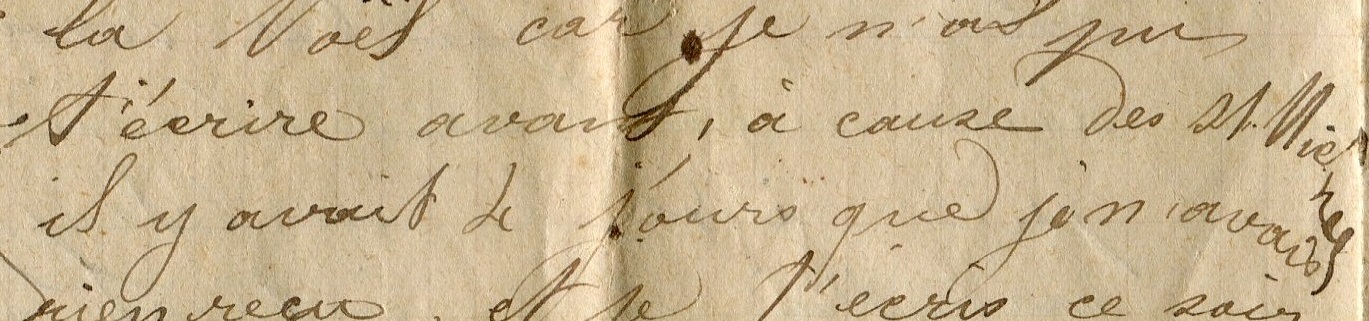 la Noël car je n'ai pu
t'écrire avant, à cause des St. Nicholas
il y avait 4 jours que je n'avais
rien reçu. et je t'écris ce soir